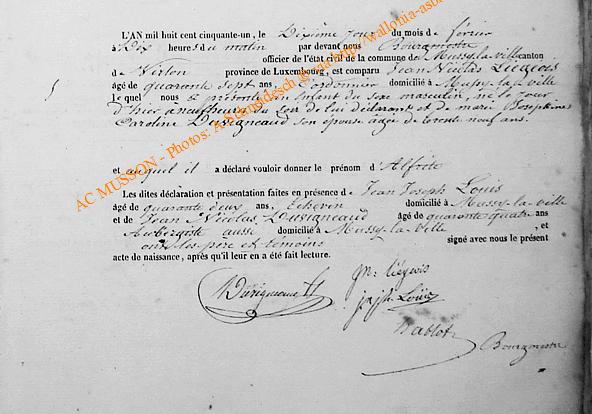 L'AN mil huit cent cinquante-un, le Dixième jour du mois de février
à Dix heures du matin par devant nous Bourgmestre
officier de l'état civil de la commune de Mussy-la-ville canton
de Virton province de Luxembourg, est comparu Jean Nicolas Liégeois
âgé de quarante sept ans Cordonnier domicilié à Mussy-la-ville
lequel nous a présenté un enfant du sexe masculin, né le jour
d'hier à neuf heures du soir de lui déclarant et de marie Josephine
Caroline Duvigneaud son épouse âgée de trente neuf ans.
et auquel il a déclaré vouloir donner le prénom d'Alfride
Les dites déclaration et présentation faites en présence de Jean Joseph Louis
âgé de quarante deux ans, Echevin domicilié à Mussy-la-ville
et de Jean Nicolas Duvigneaud âgé de quarante quatre ans
Aubergiste aussi domicilié à Mussy-la-ville , et
ont les père et témoins signé avec nous le présent
acte de naissance, après qu'il leur en a été fait lecture.
Duvigneaud
jn: liégeois
Louis
Bourgmestre
AC MUSSON - Photos: A.Schmadesch © aaa http://wallonia-asbl